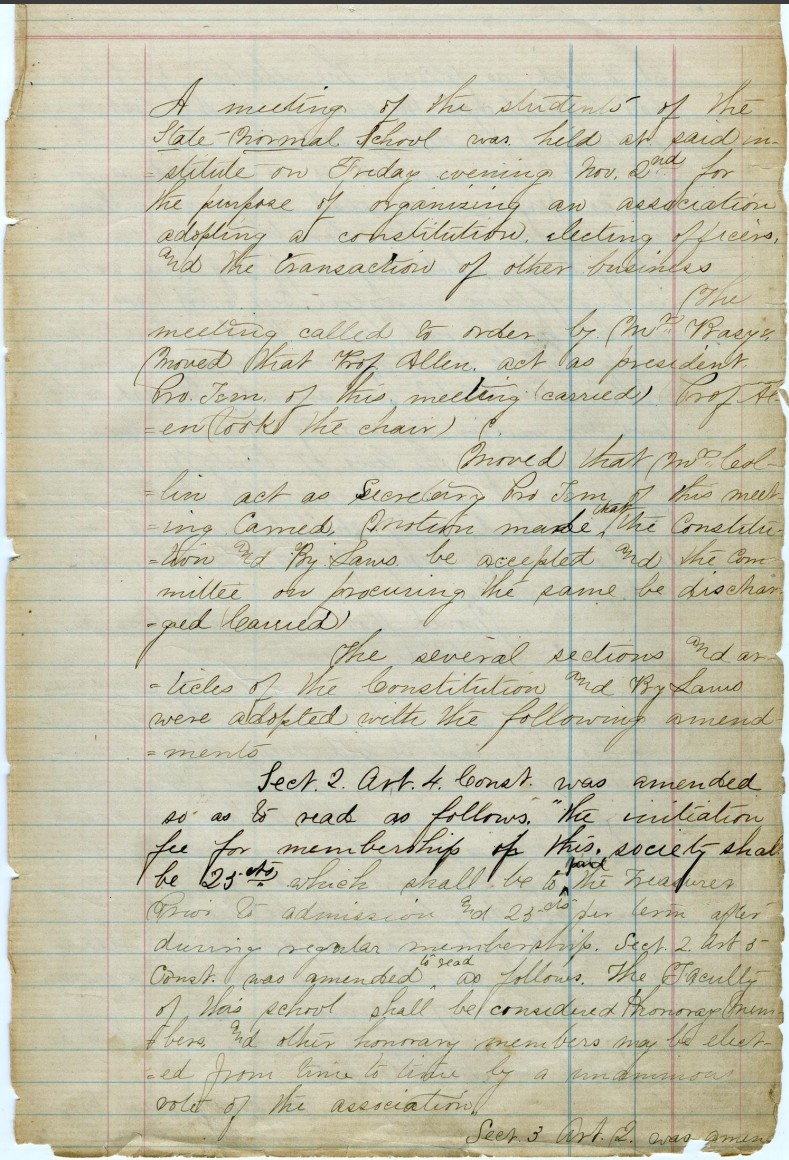 A meeting of the students of the
State Normal School was held at said in-
=stitute on Friday evening Nov. 2nd for
the purpose of organizing an association
adopting a constitution, electing officers,
and the transaction of other business
The
meeting called to order by Mr.
Moved that Prof Allen, act as president
Pro. Tem. of this meeting (carried) Prof All
=en (took the chair)
Moved that Mr. Col-
=lin act as Secretary Pro Tem of this meet-
=ing Carried, Motion made that the Constitu-
=tion and By Laws be accepted and the Com-
mittee on procuring the same be dischar-
=ged Carried)
The several sections and ar-
=ticles of the Constitution and By Laws
were adopted with the following amend-
=ments
Sect. 2. Art. 4. Const. was amended
so as to read as follows. "The initiation
fee for membership of this society shall
be 25 cts which shall be paid to the Treasurer
Prior to admission and 25 cts per term after
during regular membership. Sect. 2 Art 5
Const. was amended to read as follows. The Faculty
of this school shall be considered honoray mem-
=bers, and other honorary members may be elect-
=ed from time to time by a unanimous
vote of the association"
Sect. 3 Art. 2. was amen